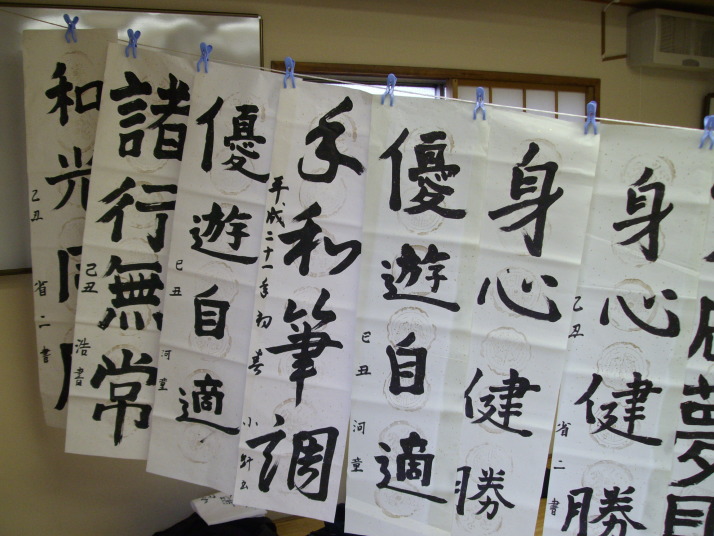 和光同
己丑 省二書
諸行無常
己丑 浩書
優遊自適
己丑 河童
手和筆調
平成二十一年初春
優遊自適
己丑 河童
身心健勝
身心健勝
己丑 省二書
夢